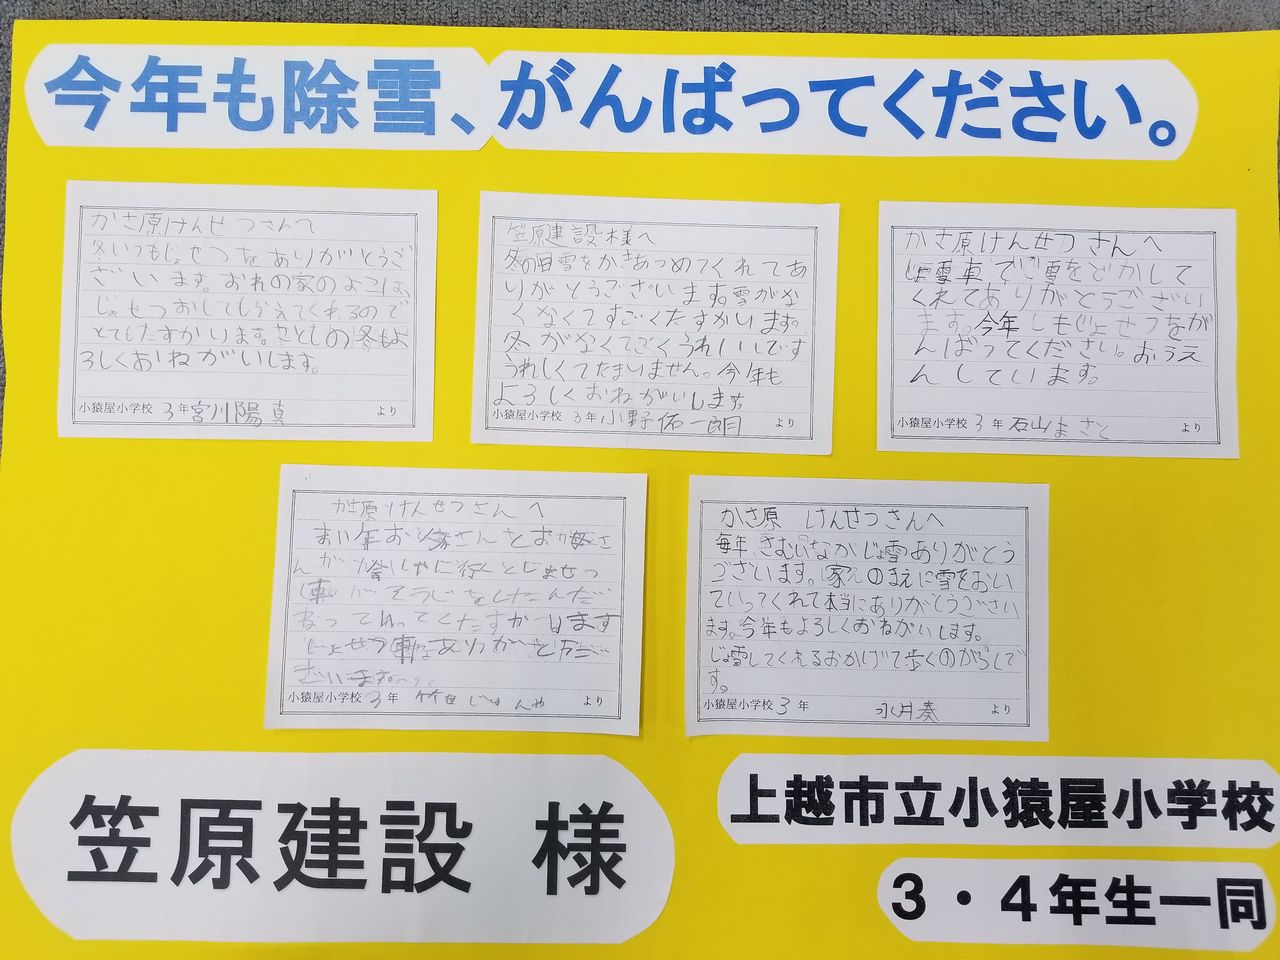 今年も除雪、がんばってください。
かさ原けんせつさんへ
冬いつもじょせつをありがとうご
ざいます。おれの家のよこは、
じょせつおしてもらえてくれるので
とてもたすかります。ことしの冬もよ
ろしくおねがいします。
小猿屋小学校 3年 宮川陽真 より
笠原建設様へ
冬の日雪をかきあつめてくれてあ
りがとうございます。雪がな
くなくてすごくたすかります。
冬がなくてごくうれしいです
うれしくてたまいません。今年も
よろしくおねがいします
小猿屋小学校 3年 小野佑一朗 より
かさ原けんせつさんへ
じょ雪車でご雪をどかして
くれてありがとうござい
ます。今年しもじょせつをが
んばってください。おうえ
んしています。
小猿屋小学校 3年 石山まさと より
かさ原けんせつさんへ
まい年お父さんとお母さ
んが会しゃに行くとじょせつ
車がそうじをしたんだ
なってたすかります
じょせつ車ありがとうご
ざいます。
小猿屋小学校 3年 竹田じゅんや より
かさ原 けんせつさんへ
毎年、さむいなかじょ雪ありがとう
ございます。家のまえに雪をおい
ていってくれて本当にありがとうござい
ます。今年もよろしくおねがいします。
じょ雪してくれるおかげで歩くのがらくで
す。
小猿屋小学校 3年 永井奏 より
笠原建設 様
上越市立小猿屋小学校
3・4年生一同